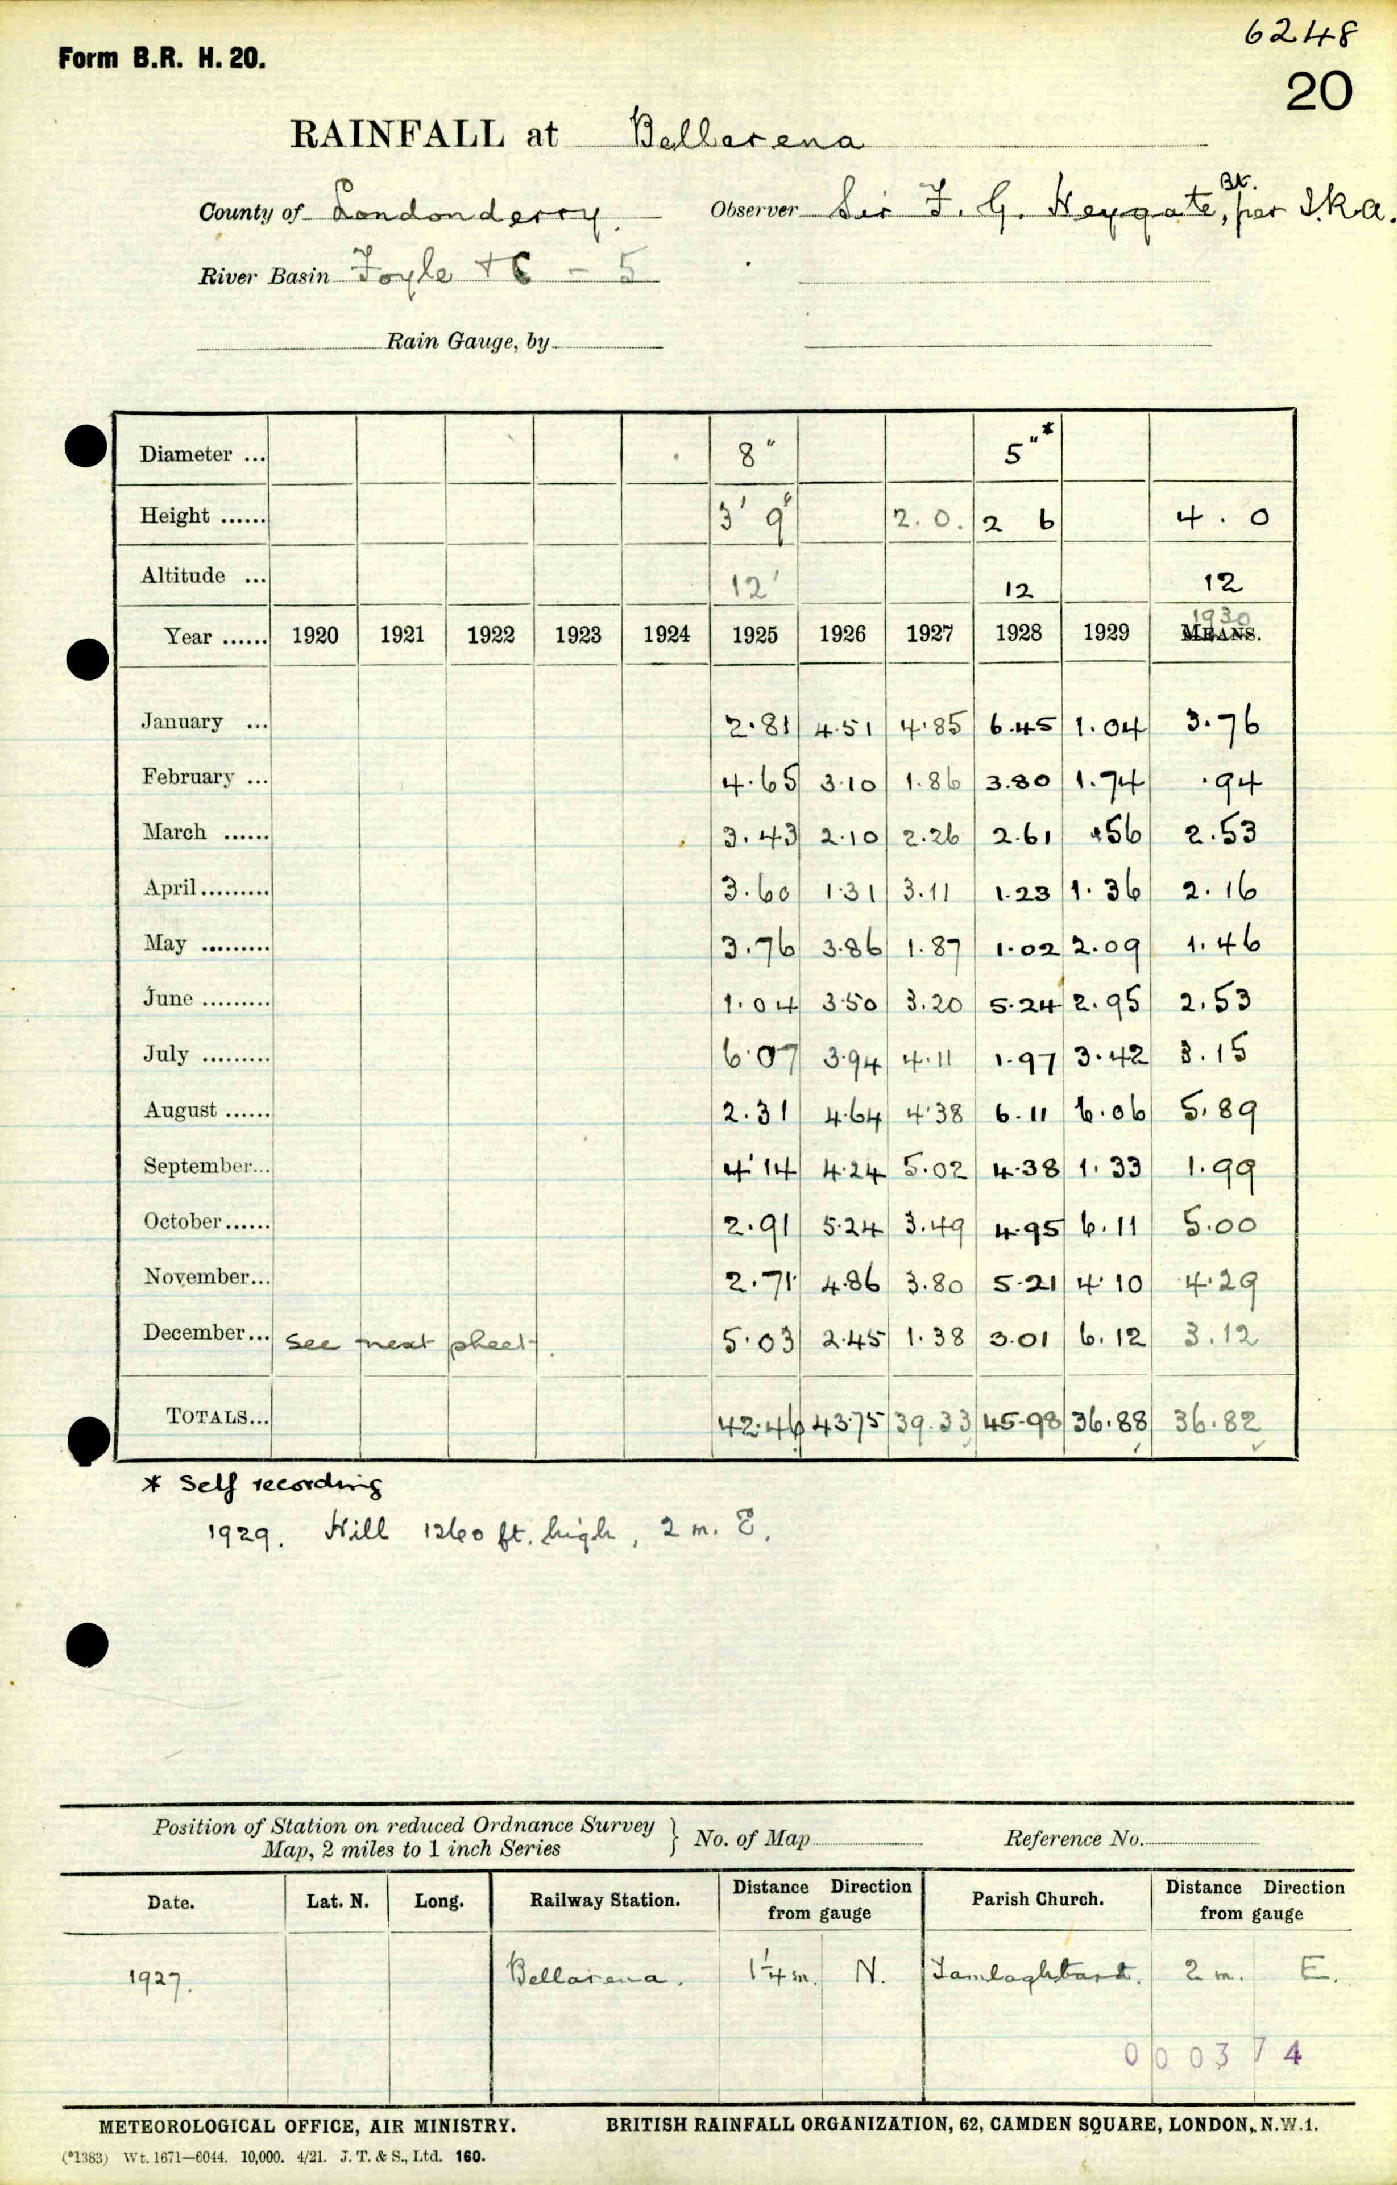 6248
Form B.R. H. 20.
20
RAINFALL at Bellarena
County of Londonderry. Observer Sir F. G. Heygate, Bt. per I.R.a.
River Basin Foyle + C - 5
Rain Gauge, by
Diameter ... 8" 5"*
Height ...... 3' 9" 2.0. 2 6 4.0
Altitude ... 12' 12 12
Year ...... 1920 1921 1922 1923 1924 1925 1926 1927 1928 1929 MEANS. 1930
January ... 2.81 4.51 4.85 6.45 1.04 3.76
February ... 4.65 3.10 1.86 3.80 1.74 .94
March ...... 3.43 2.10 2.26 2.61 .56 2.53
April......... 3.60 1.31 3.11 1.23 1.36 2.16
May ......... 3.76 3.86 1.87 1.02 2.09 1.46
June ......... 1.04 3.50 3.20 5.24 2.95 2.53
July ......... 6.07 3.94 4.11 1.97 3.42 3.15
August ...... 2.31 4.64 4.38 6.11 6.06 5.89
September... 4.14 4.24 5.02 4.38 1.33 1.99
October...... 2.91 5.24 3.49 4.95 6.11 5.00
November... 2.71 4.86 3.80 5.21 4.10 4.29
December... see next sheet. 5.03 2.45 1.38 3.01 6.12 3.12
TOTALS... 42.46 43.75 39.33 45.98 36.88 36.82
* Self recording
1929. Hill 1260 ft. high, 2 m. E.
Position of Station on reduced Ordnance Survey Map, 2 miles to 1 inch Series } No. of Map Reference No.
Date. Lat. N. Long. Railway Station. Distance Direction from gauge Parish Church. Distance Direction from gauge
1927. Bellarena. 1¼ m. N. Tamlaghtard. 2 m. E.
000374
METEOROLOGICAL OFFICE, AIR MINISTRY. BRITISH RAINFALL ORGANIZATION, 62, CAMDEN SQUARE, LONDON, N.W.1.
(*1383) Wt. 1671—6044. 10,000. 4/21. J. T. & S., Ltd. 160.